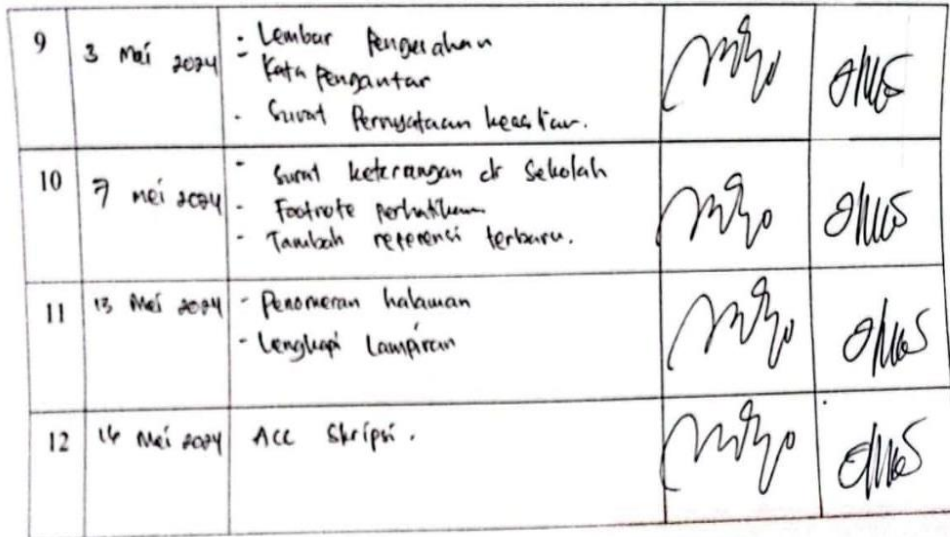 9
3 Mei 2024
- Lembar Pengesahan
- Kata Pengantar
- Surat Pernyataan keaslian.
10
7 Mei 2024
- Surat keterangan dr Sekolah
- Footnote perhatikan
- Tambah referensi terbaru.
11
13 Mei 2024
- Penomeran halaman
- Lengkapi Lampiran
12
Mei 2024
ACC Skripsi.